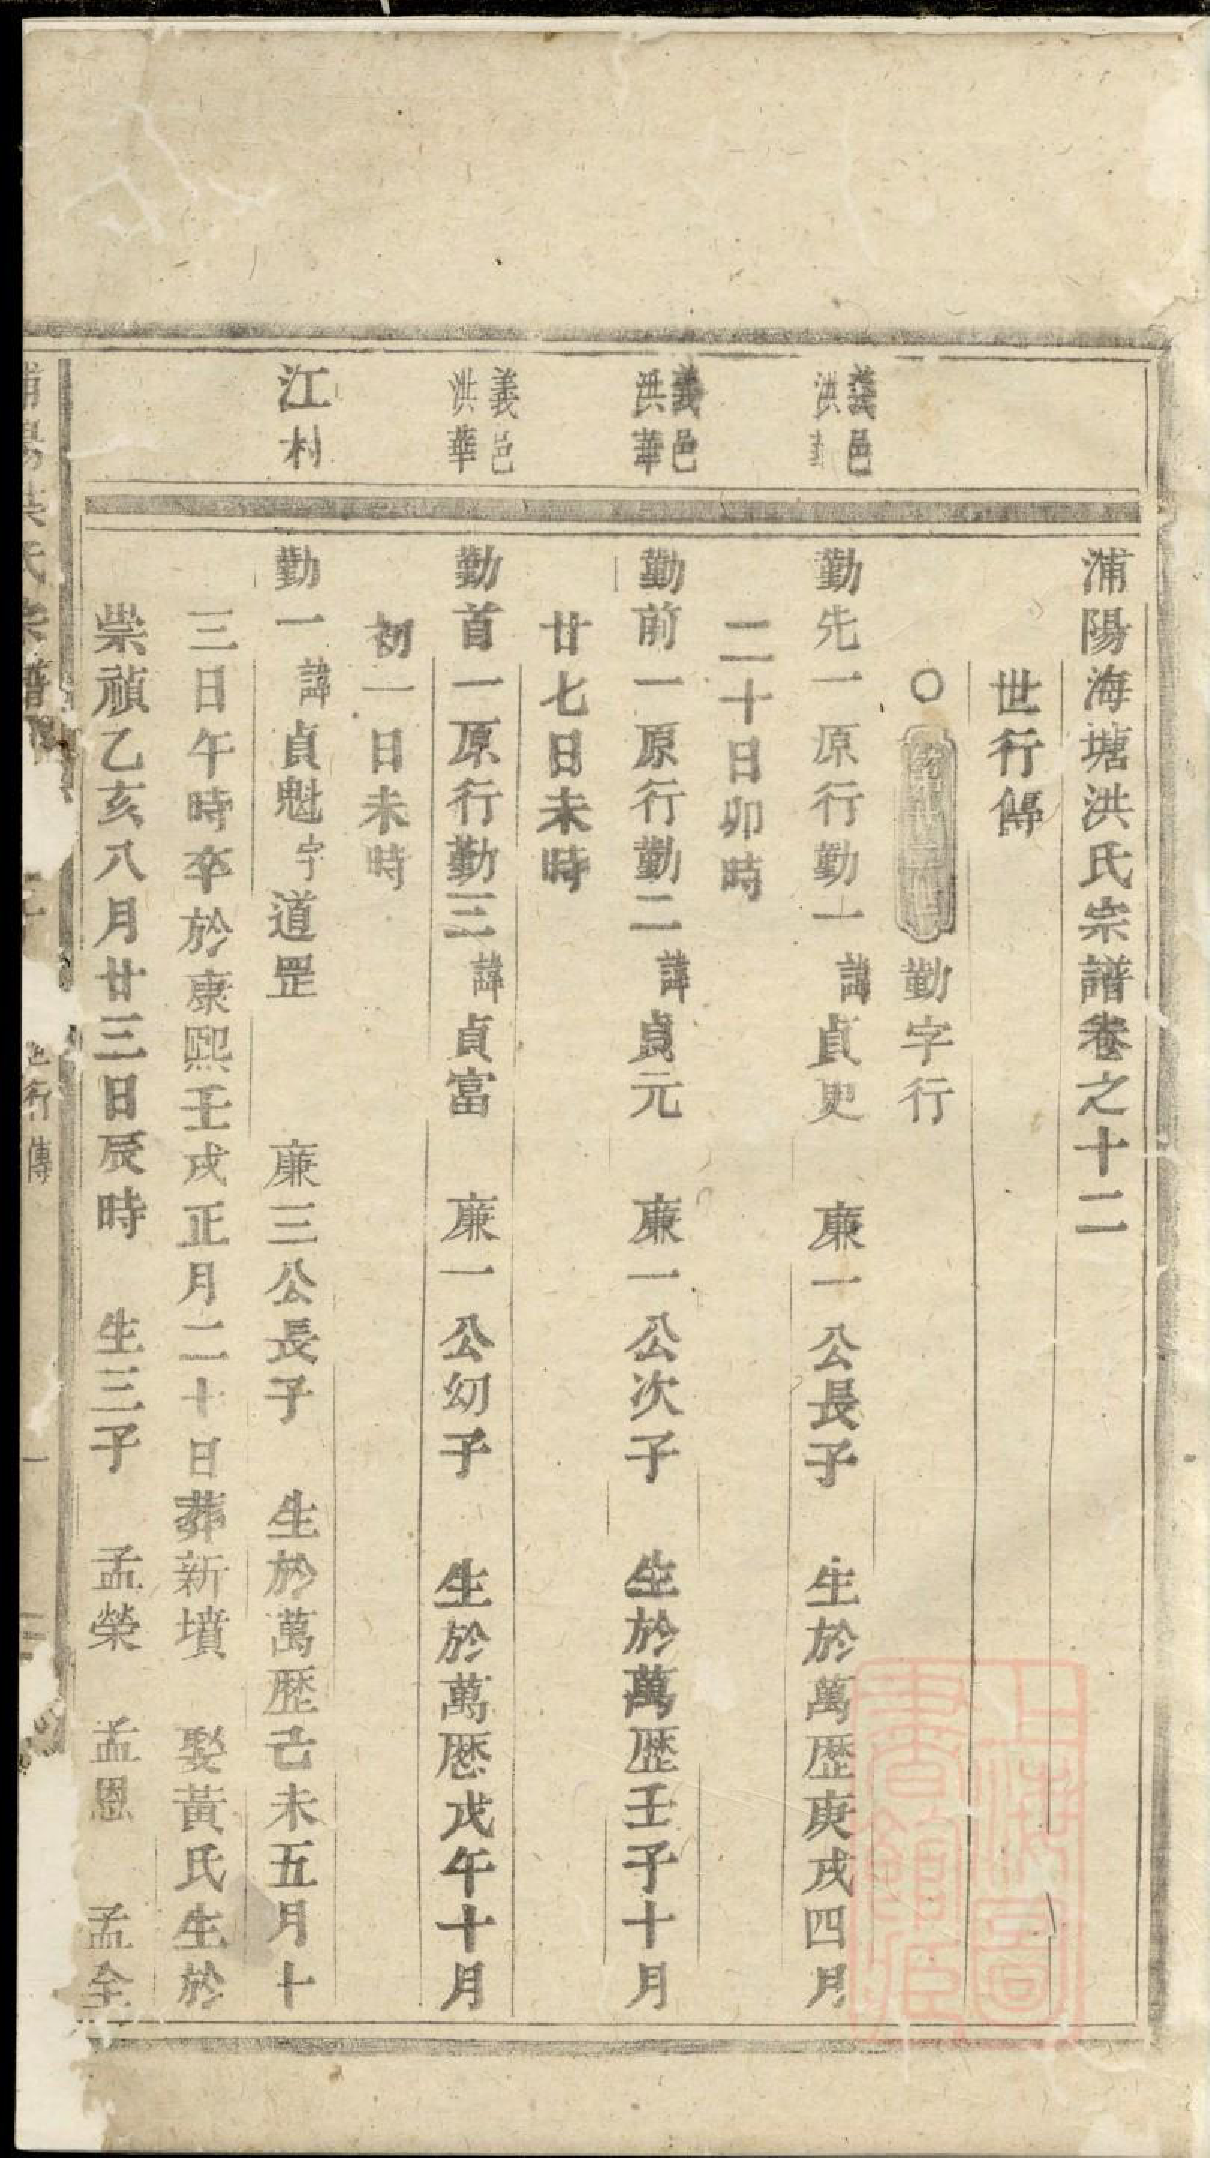 浦陽海塘洪氏宗譜卷之十二
世行傳
○
勤字行
義邑
洪華
勤先一原行勤一諱貞吏 廉一公長子 生於萬歷庚戌四月
二十日卯時
義邑
洪華
勤前一原行勤二諱貞元 廉一公次子 生於萬歷壬子十月
廿七日未時
義邑
洪華
勤首一原行勤三諱貞富 廉一公幼子 生於萬歷戊午十月
初一日未時
江村
勤一諱貞魁字道罡 廉三公長子 生於萬歷己未五月十
三日午時卒於康熙壬戌正月二十日葬新墳 娶黃氏生於
崇禎乙亥八月廿三日辰時 生三子 孟榮 孟恩 孟全
氏宗譜
世行傳
一
上海圖
書館藏